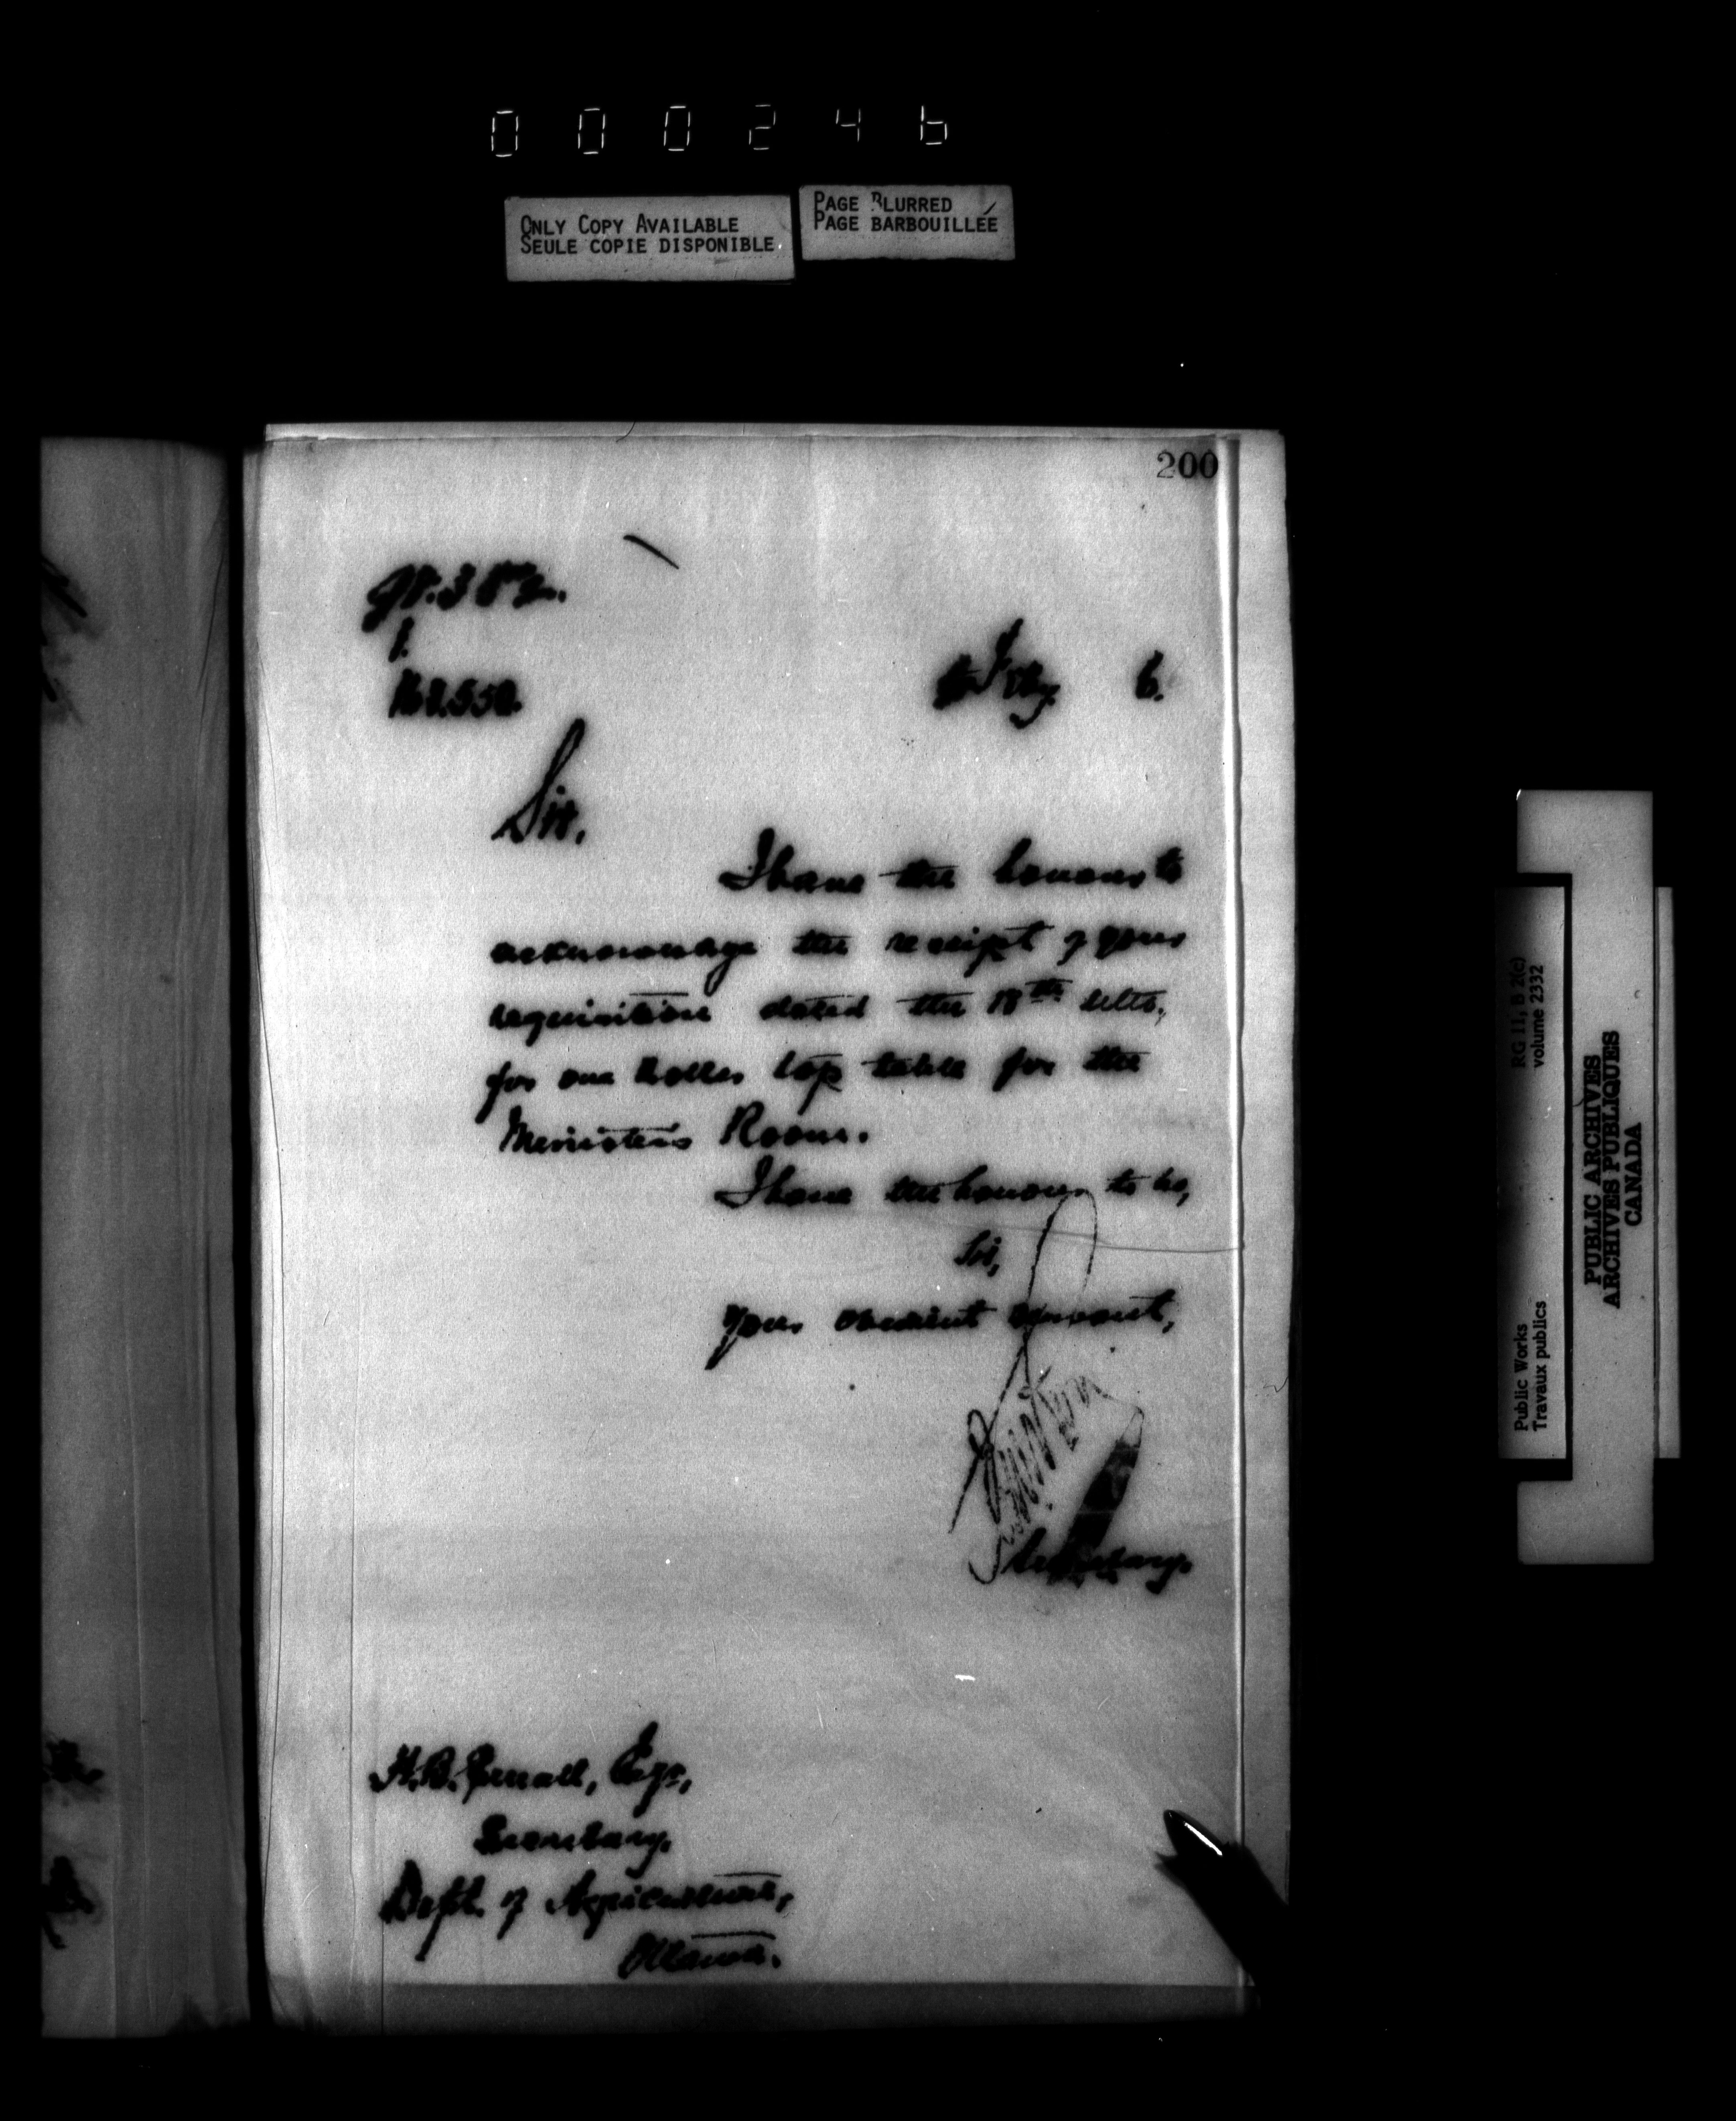 000246
ONLY COPY AVAILABLE
SEULE COPIE DISPONIBLE
PAGE BLURRED
PAGE BARBOUILLÉE
200
6.
Sir,
I have the honour to
acknowledge the receipt of your
requisition dated the 18th ulto,
for one Roller top table for the
Minister's Room.
I have the honour to be,
Sir,
Your obedient servant,
Secretary.
H. B. Small, Esqr,
Secretary,
Dept. of Agriculture,
Ottawa.
RG 11, B 2(c)
volume 2332
Public Works
Travaux publics
PUBLIC ARCHIVES
ARCHIVES PUBLIQUES
CANADA